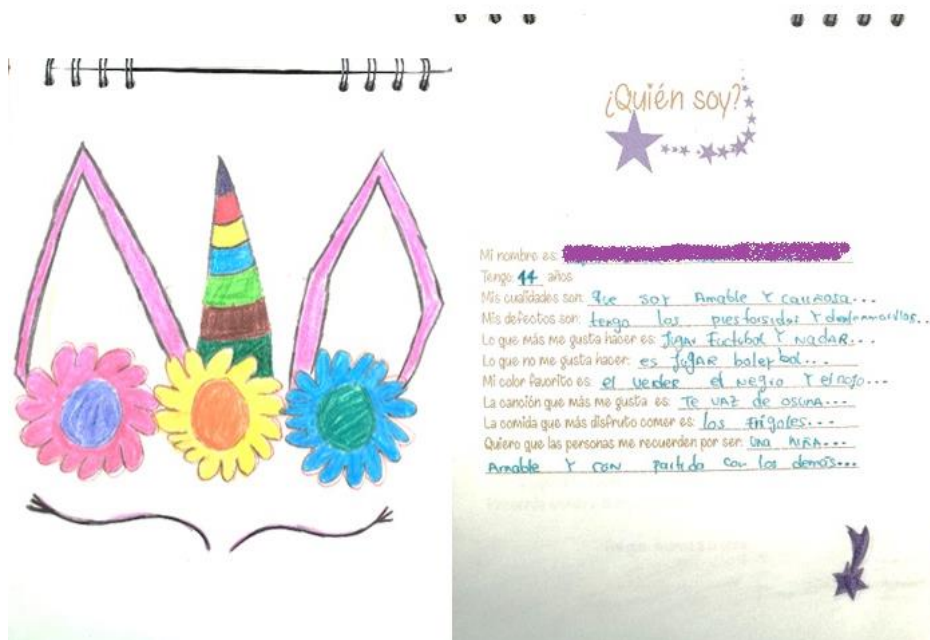 ¿Quién soy?
Mi nombre es:
Tengo: 14 años
Mis cualidades son: que soy Amable Y cariñosa...
Mis defectos son: tengo los pies torsidos Y
Lo que más me gusta hacer es: Jugar Fuctubol Y NadAR...
Lo que no me gusta hacer: es JugAR bolerbol...
Mi color favorito es: el verder el Negro Y el rojo...
La canción que más me gusta es: Te VAZ de osuna...
La comida que más disfruto comer es: los frigoles...
Quiero que las personas me recuerden por ser: una NiÑA...
Amable Y con partida con los demás...